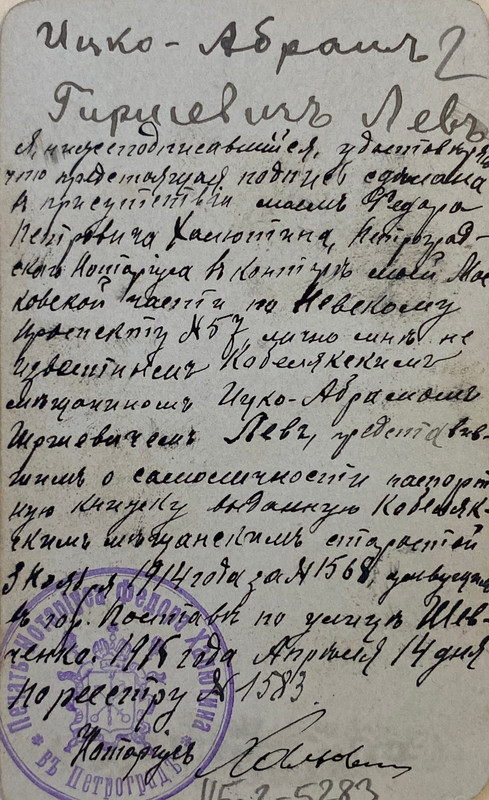 Ицко-Абрамъ 2
Гиршевичъ Левъ
Я, нижеподписавшійся, удостовѣряю,
что предстоящая подпись сдѣлана
въ присутствіи моемъ Федора
Петровича Халютина, Петроград-
скаго Нотаріуса въ конторѣ моей Мос-
ковской части по Невскому
проспекту № 57, лично мнѣ не
извѣстнымъ Кобелякскимъ
мѣщаниномъ Ицко-Абрамомъ
Гиршевичемъ Левъ, представив-
шимъ о самоличности паспорт
ную книжку выданную Кобеляк-
скимъ мѣщанскимъ старостой
3 1914 года за № 1568, живущимъ
въ гор. Полтавѣ по улицѣ Шев-
ченко. 1915 года Апрѣля 14 дня
По реестру № 1583
Нотаріусъ Халютинъ
Печать Нотаріуса Федора Халютина
въ Петроградѣ
115-2-5283